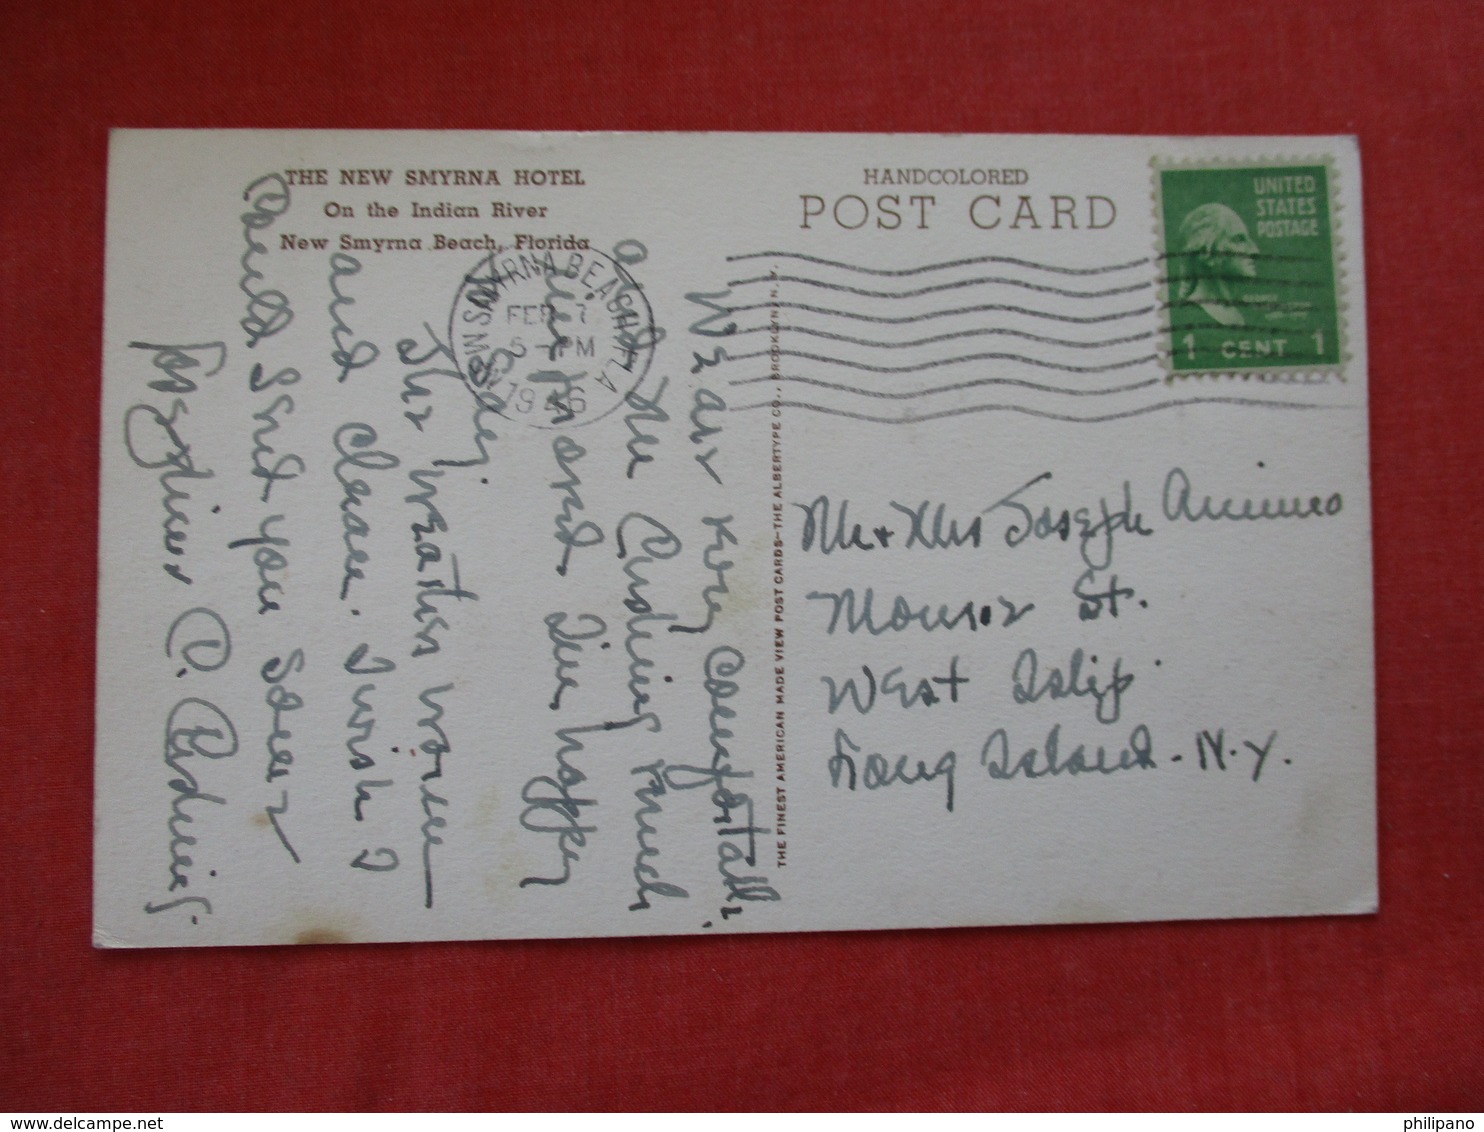 THE NEW SMYRNA HOTEL
On the Indian River
New Smyrna Beach, Florida
HANDCOLORED
POST CARD
UNITED
STATES
POSTAGE
1 CENT 1
NEW SMYRNA BEACH FLA
FEB 7
5 - PM
1946
THE FINEST AMERICAN MADE VIEW POST CARDS—THE ALBERTYPE CO., BROOKLYN, N.Y.
We are very comfortable
and
I'm happy
The weather warm
and clear. I wish I
could send you some
Mr + Mrs Joseph
St.
West Islip
Long Island - N.Y.
philipano